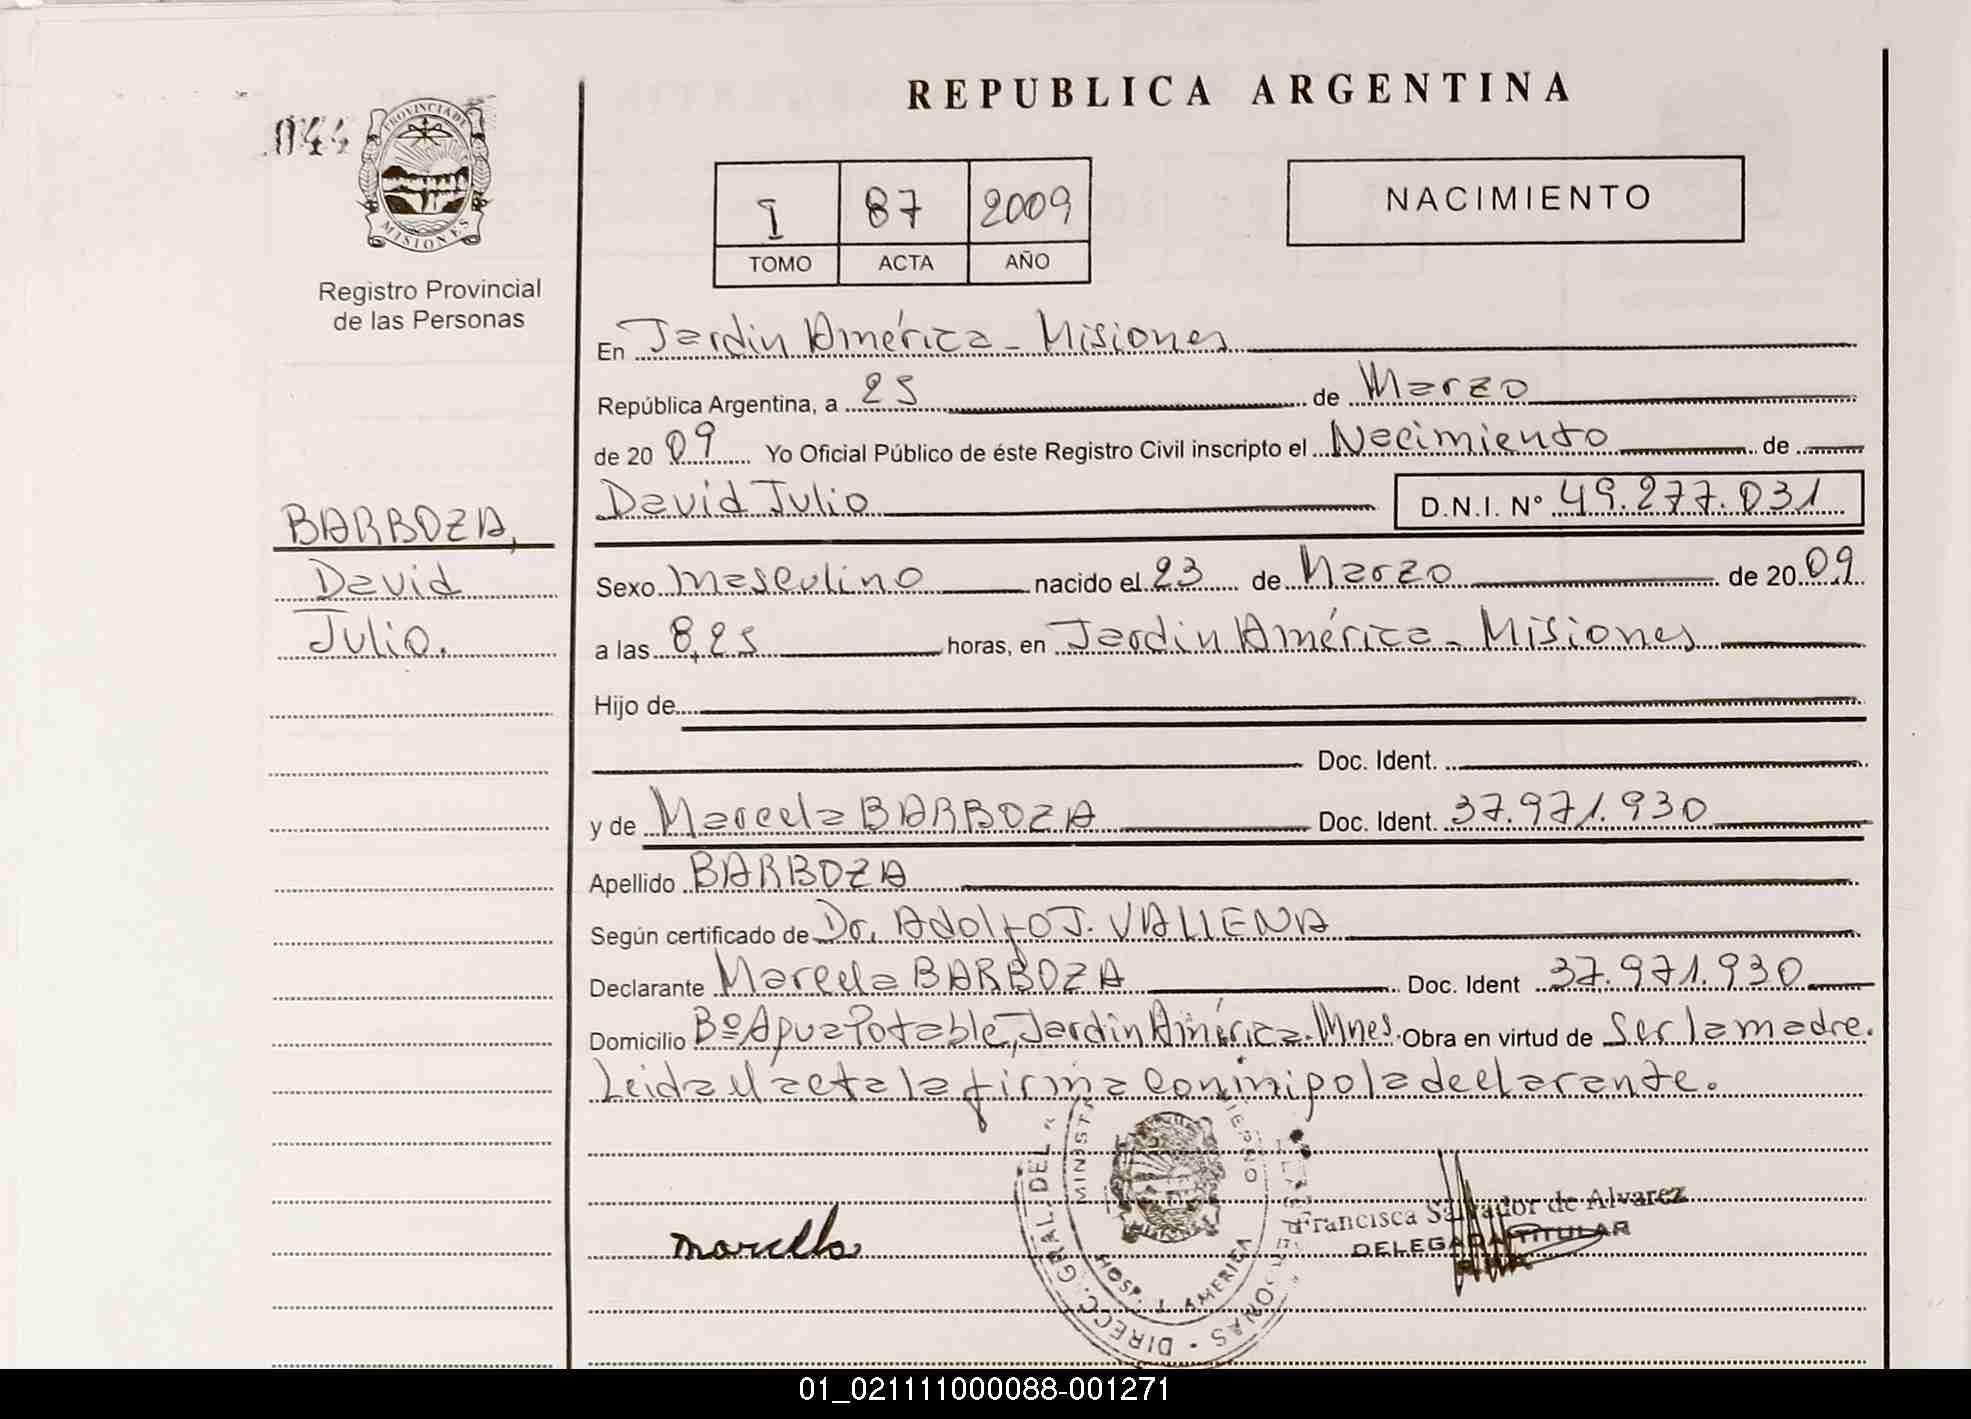 REPUBLICA ARGENTINA
044
PROVINCIA DE MISIONES
Registro Provincial
de las Personas
I 87 2009
TOMO ACTA AÑO
NACIMIENTO
En Jardín América - Misiones
República Argentina, a 25 de Marzo
de 2009 Yo Oficial Público de éste Registro Civil inscripto el Nacimiento de
David Julio D.N.I. Nº 49.277.031
BARBOZA,
David
Julio.
Sexo Masculino nacido el 23 de Marzo de 2009
a las 8,25 horas, en Jardín América - Misiones
Hijo de
Doc. Ident.
y de Marcela BARBOZA Doc. Ident. 37.971.930
Apellido BARBOZA
Según certificado de Dr. Adolfo J. VALLENA
Declarante Marcela BARBOZA Doc. Ident 37.971.930
Domicilio Bº Agua Potable, Jardín América. Mnes. Obra en virtud de Ser la madre.
Leida el acta la firma conmigo la declarante.
marcella
Francisca Salvador de Alvarez
DELEGADA TITULAR
DIRECC. GRAL. DEL
HOSP. J. AMERICA
01_021111000088-001271